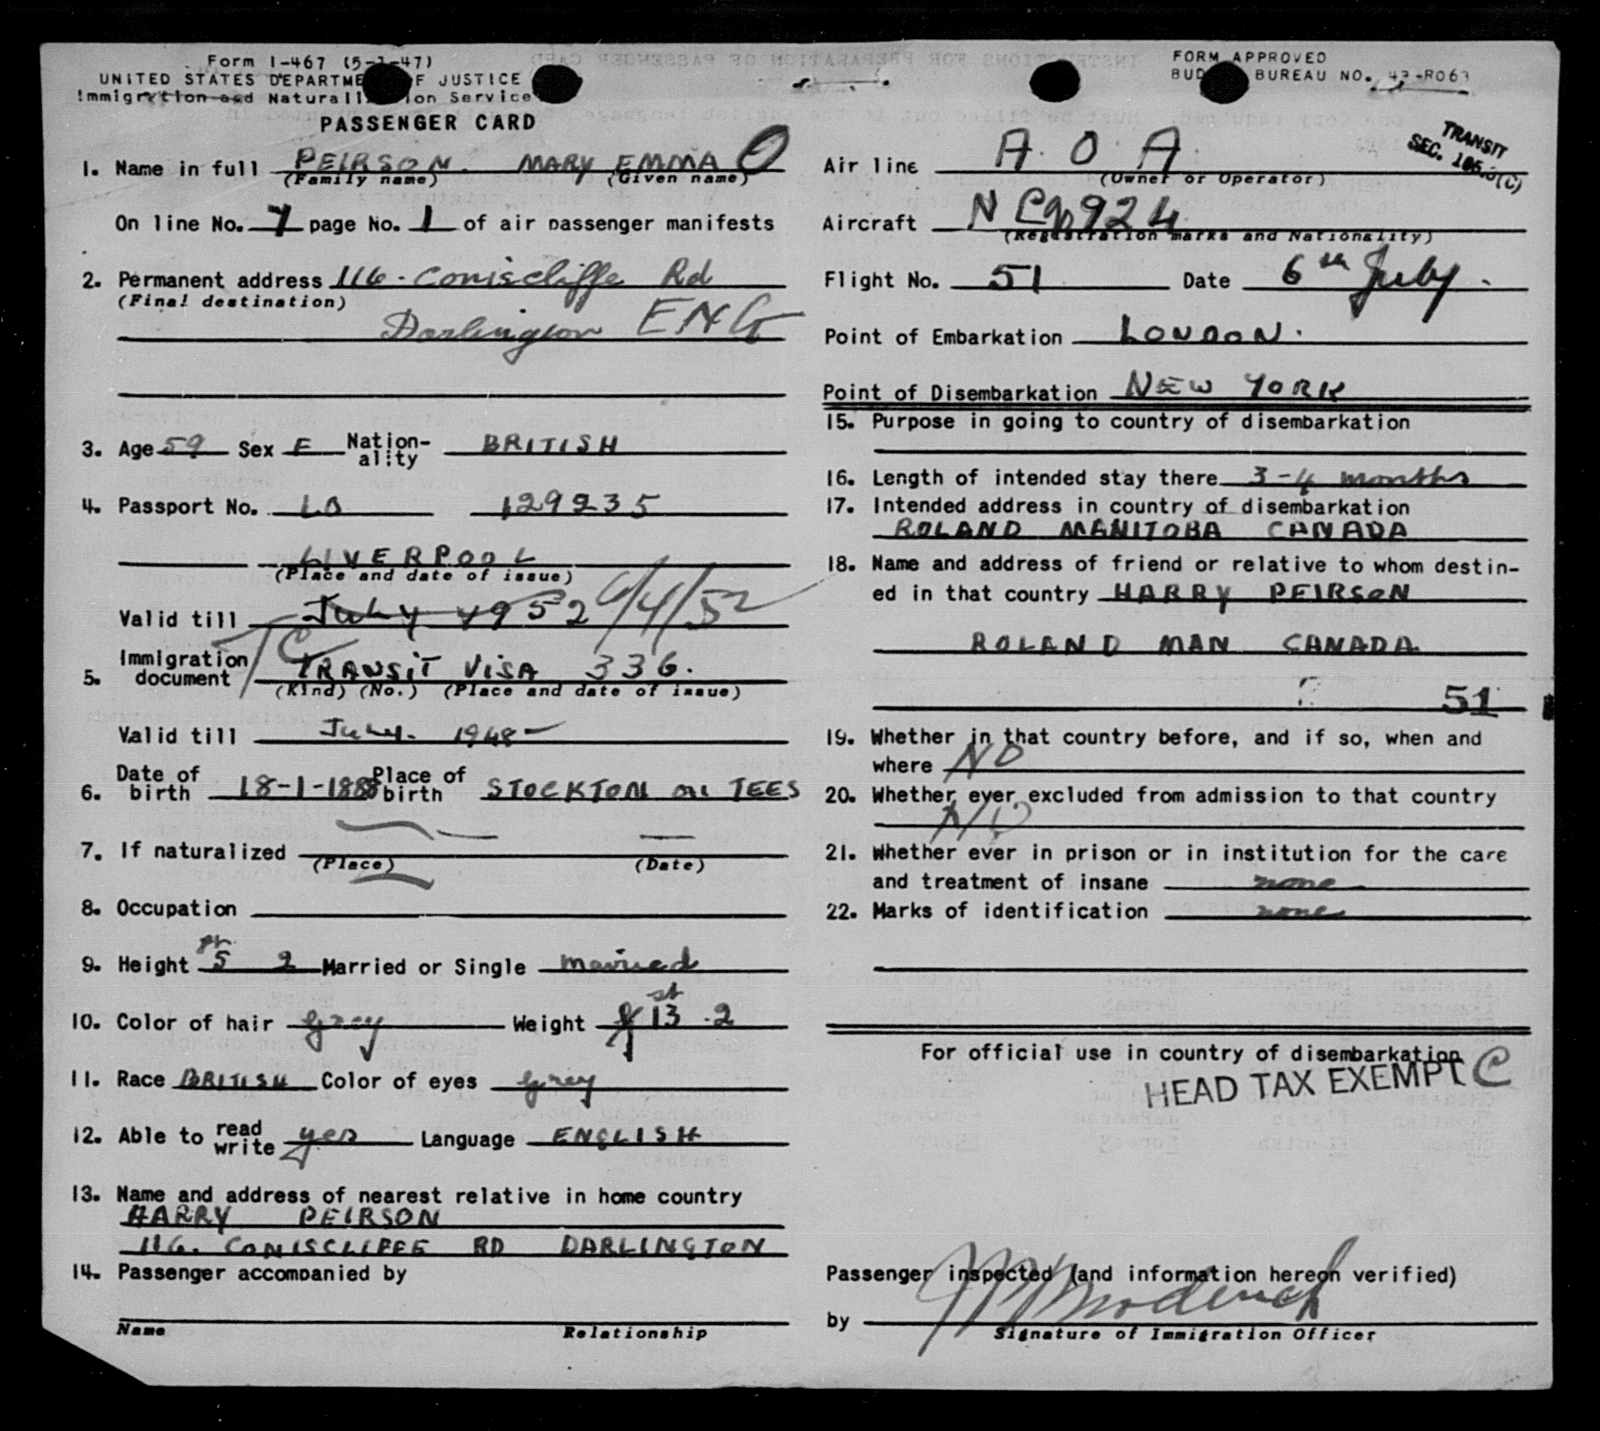 Form I-467 (5-1-47)
UNITED STATES DEPARTMENT OF JUSTICE
Immigration and Naturalization Service
PASSENGER CARD
1. Name in full PEIRSON. MARY EMMA
(Family name) (Given name)
On line No. 7 page No. 1 of air passenger manifests
2. Permanent address 116 - Coniscliffe Rd
(Final destination)
Darlington ENG
3. Age 59 Sex F Nationality BRITISH
4. Passport No. LO 129235
LIVERPOOL
(Place and date of issue)
Valid till July 1952 6/4/52
TC
5. Immigration document TRANSIT VISA 336.
(Kind) (No.) (Place and date of issue)
Valid till July. 1948
6. Date of birth 18-1-1888 Place of birth STOCKTON on TEES
7. If naturalized — —
(Place) (Date)
8. Occupation
9. Height 5 2 Married or Single Married
10. Color of hair Grey Weight 13 st. 2
11. Race BRITISH Color of eyes Grey
12. Able to read write yes Language ENGLISH
13. Name and address of nearest relative in home country
HARRY PEIRSON
116. CONISCLIFFE RD DARLINGTON
14. Passenger accompanied by
Name Relationship
FORM APPROVED
BUDGET BUREAU NO. 43-R063
TRANSIT
SEC.
Air line A.O.A.
(Owner or Operator)
Aircraft 924
(Registration marks and Nationality)
Flight No. 51 Date 6th July.
Point of Embarkation LONDON.
Point of Disembarkation NEW YORK
15. Purpose in going to country of disembarkation
16. Length of intended stay there 3-4 months
17. Intended address in country of disembarkation
ROLAND MANITOBA CANADA
18. Name and address of friend or relative to whom destin-
ed in that country HARRY PEIRSON
ROLAND MAN CANADA
51
19. Whether in that country before, and if so, when and
where NO
20. Whether ever excluded from admission to that country
NO
21. Whether ever in prison or in institution for the care
and treatment of insane none
22. Marks of identification none
For official use in country of disembarkation
HEAD TAX EXEMPT C
Passenger inspected (and information hereon verified)
by
Signature of Immigration Officer